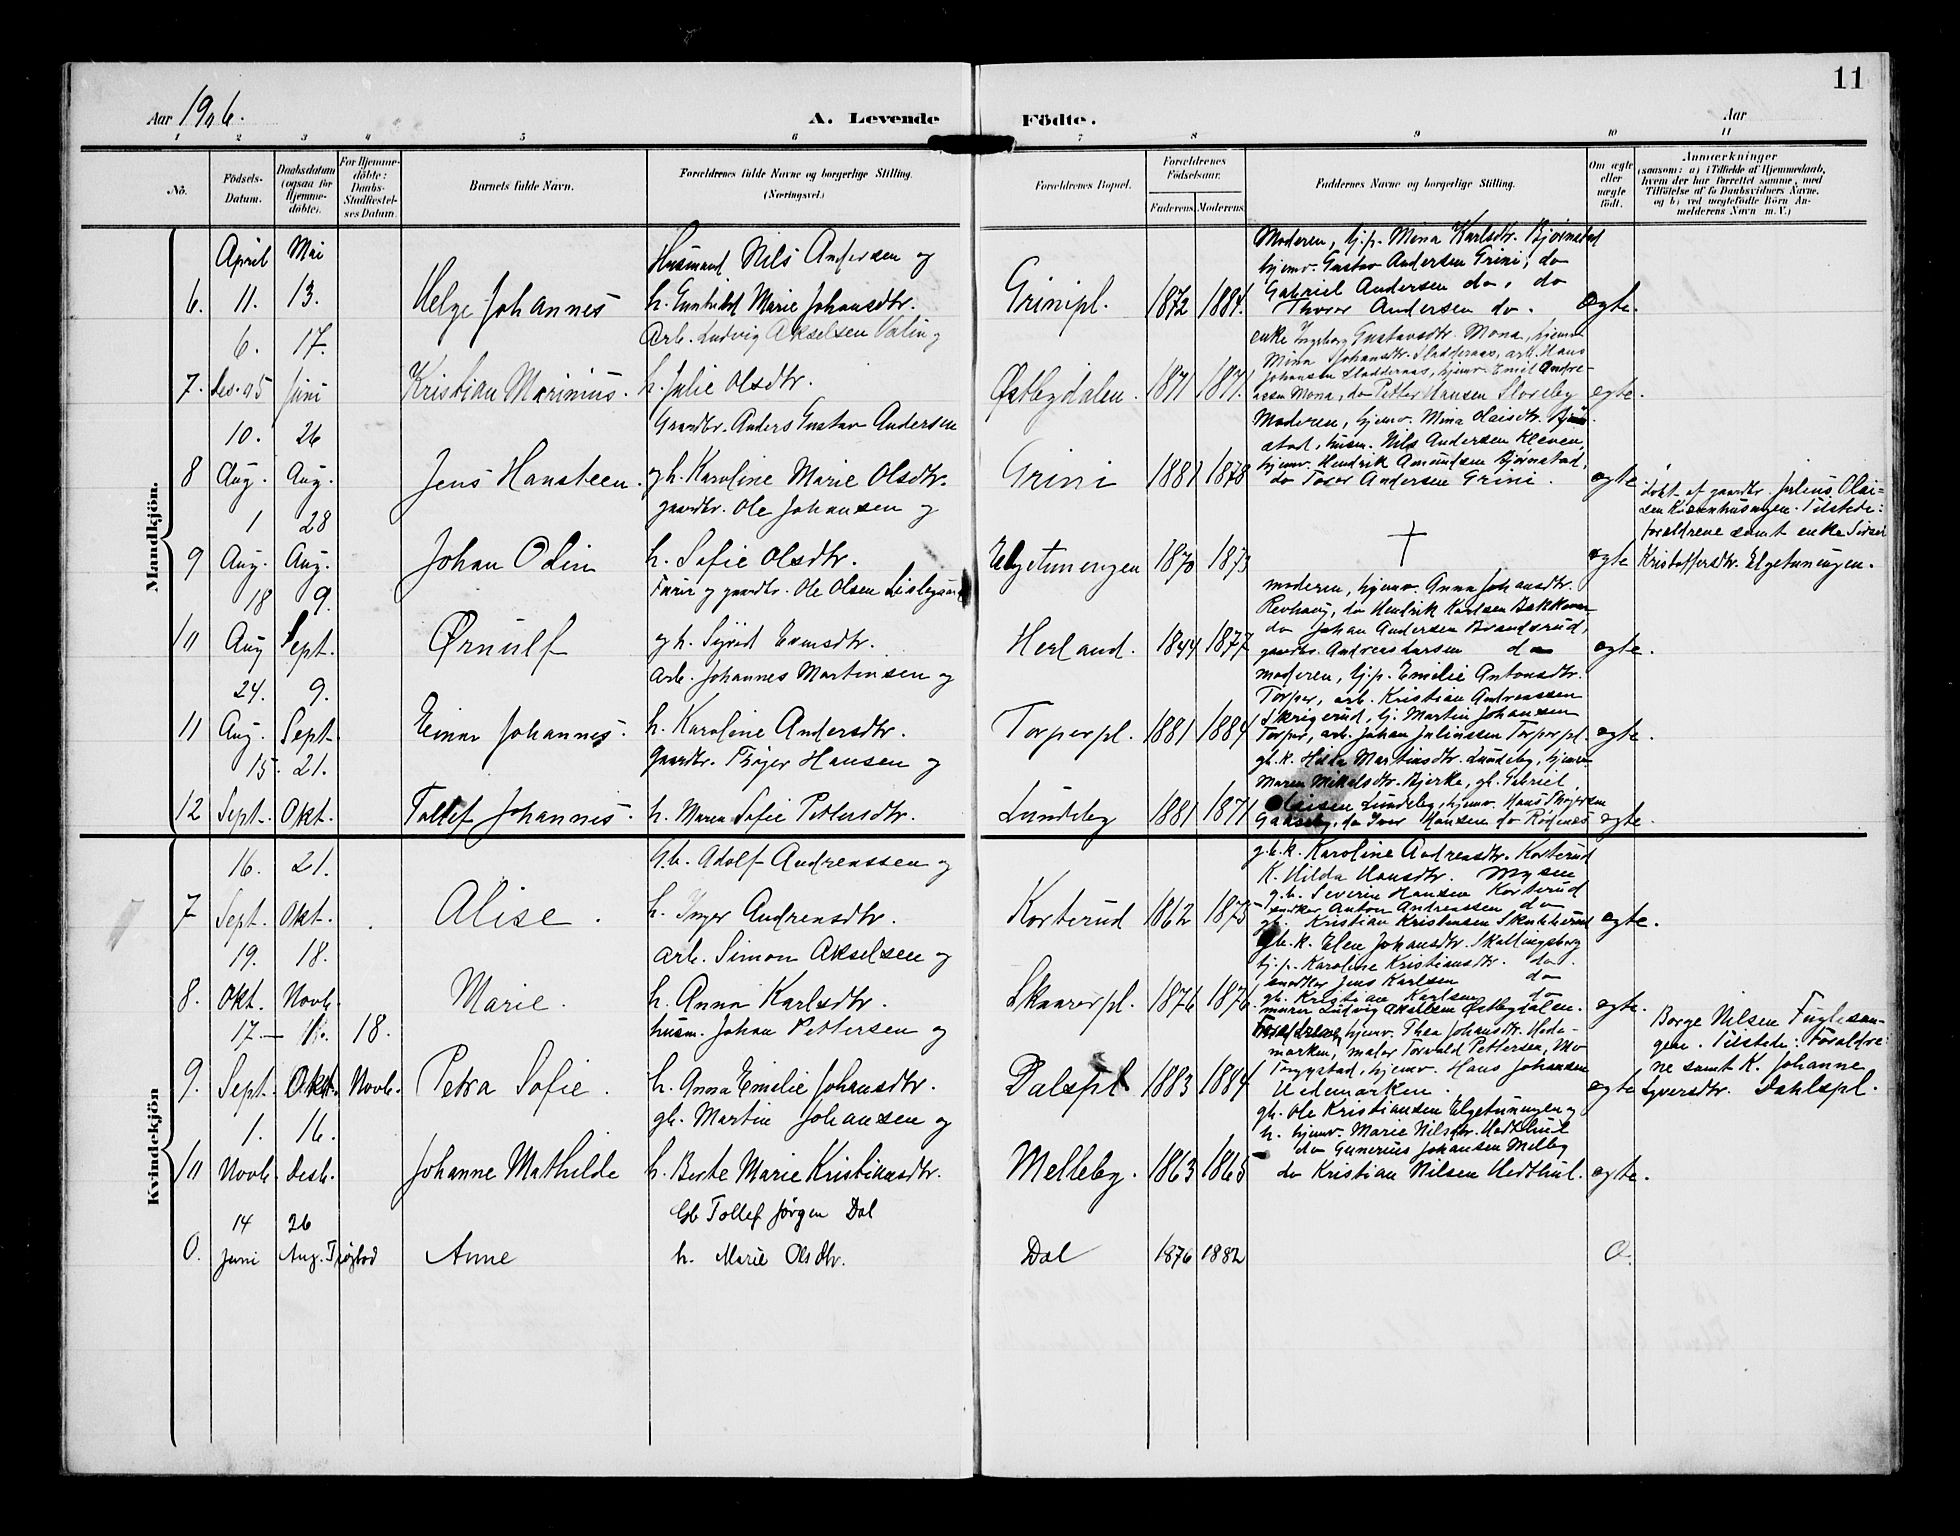 11
Aar 1906.
A. Levende Födte.
Aar
1 2 3 4 5 6 7 8 9 10 11
No.
Födsels-Datum.
Daabsdatum (ogsaa for Hjemme-döbte).
For Hjemme-döbte: Daabs-Stadfæstel-ses Datum.
Barnets fulde Navn.
Forældrenes fulde Navne og borgerlige Stilling. (Næringsvei.)
Forældrenes Bopæl.
Forældrenes Födselsaar.
Faderens. Moderens.
Faddernes Navne og borgerlige Stilling.
Om ægte eller uægte födt.
Anmærkninger
(saasom: a) i Tilfælde af Hjemmedaab, hvem der har forrettet samme, med Tilföielse af to Daabsvidners Navne, og b) ved uægtefödte Börn An-melderens Navn m. V.)
Mandkjön.
6. April 11. Mai 13. Helge Johannes
Husmand Nils Andersen og
h. Gunhild Marie Johansdtr.
Grinipl. 1872 1884.
Moderen, tj.p. Mina Karlsdtr. Bjørnstad
hjemv. Gustav Andersen Grini, do
Gabriel Andersen do, do
Thorer Andersen do. ægte.
7. 6. Des. 05 17. Juni Kristian Marinius.
Arb. Ludvig Akselsen Dalin og
h. Julie Olsdtr.
Østbydalen. 1871 1871.
enke Ingeborg Gustavsdtr. Mona, hjemv.
Mina Johansdtr. Sladderaas, arb. Hans
Johansen Sladderaas, hjemv. Emil Andre-
asen Mona, do Petter Hansen Storeby ægte.
8 10. Aug. 26 Aug. Jens Hansteen.
Gaardbr. Anders Gustav Andersen
og h. Karoline Marie Olsdtr.
Grini 1881 1878
Moderen, hjemv. Mina Olaisdtr. Bjørn-
stad, husm. Nils Andersen Kleven,
hjemv. Hendrik Amundsen Bjørnstad,
do Torer Andersen Grini. ægte.
9 1 Aug. 28 Aug. Johan Odin
gaardbr. Ole Johansen og
h. Sofie Olsdtr.
Elgetunengen 1870 1873
† ægte
Døbt af gaardbr. Julius Olai-
sen Kisenhusengen. Tilstede:
foreldrene samt enke
Kristoffersdtr. Elgetunengen.
10 18 Aug 9. Sept. Ørnulf
Furer og gaardbr. Ole Olsen Lislegaard
og h. Sigrid Evensdtr.
Herland. 1844 1877
moderen, hjemv. Anna Johansdtr.
Revhaug, do Hendrik Karlsen Bakkeven
do Johan Andersen Brandsrud,
gaardbr. Andreas Larsen do ægte.
11 24. Aug. 9. Sept. Einar Johannes.
Arb. Johannes Martinsen og
h. Karoline Andersdtr.
Torperpl. 1881 1884
moderen, tj.p. Emilie Antonsdtr.
Torper, arb. Kristian Andreassen
Skrigerud, tj. Martin Johansen
Torper, arb. Johan Juliussen Torperpl. ægte.
12 15. Sept. 21. Okt. Tollef Johannes.
Gaardbr. Thøger Hansen og
h. Maren Sofie Pettersdtr.
Lundeby 1881 1871
gb.k. Hilda Martinsdtr. Lundeby, hjemv.
Maren Mikalsdtr. Bjerke, gb. Gabriel
Olaisen Lundeby, hjemv. Hans Thøgersen
Gaaseby, do Iver Hansen do Rødenes ægte.
Kvindekjön
7 16. Sept. 21. Okt. Alise.
Gb. Adolf Andreassen og
h. Inger Andreasdtr.
Korterud 1862 1875
gb.k. Karoline Andreasdtr. Korterud
K. Hilda Hansdtr. Mysen
gb. Severin Hansen Korterud
snekker Anton Andreassen do
gb. Kristian Kristensen Skubberud ægte.
8. 19. Okt. 18. Novb. Marie.
Arb. Simon Akselsen og
h. Anna Karlsdtr.
Skaarerpl. 1876 1876.
gb.k. Elen Johansdtr. Skallingsborg
tj.p. Karoline Kristiansdtr. do.
snedker Jens Karlsen do
gb. Kristian Karlsen do
murer Ludvig Akselsen Østbydalen. ægte.
9. 17. Sept. Okt. 18. Novb. Petra Sofie.
husm. Johan Pettersen og
h. Anna Emilie Johansdtr.
Dalspl 1883 1884
Foreldrene, hjemv. Thea Johansdtr. Hede-
marken, maler Torvald Pettersen, Mo
Tryggstad, hjemv. Hans Johansen
Hedemarken. ægte
Borge Nilsen Fuglesan-
gen. Tilstede: Foraldre-
ne samt K. Johanne
Syversdtr. Dahlspl.
10 1. Novb. 16. Desb. Johanne Mathilde
gb. Martin Johansen og
h. Berte Marie Kristiansdtr.
Melleby. 1863 1865
gb. Ole Kristiansen Elgetunengen og
h. hjemv. Marie Nilsdtr. Hedthul
do Gunerius Johansen Melleby
do Kristian Nilsen Hedthul. ægte.
0. 14 Juni 26 Aug. Trøgstad Anne
Gb Tollef Jørgen Dal
h. Marie Olsdtr.
Dal 1876 1882 O.